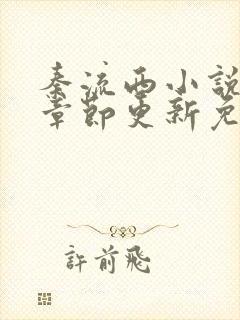 秦流西小說
章節更新免
許前飛